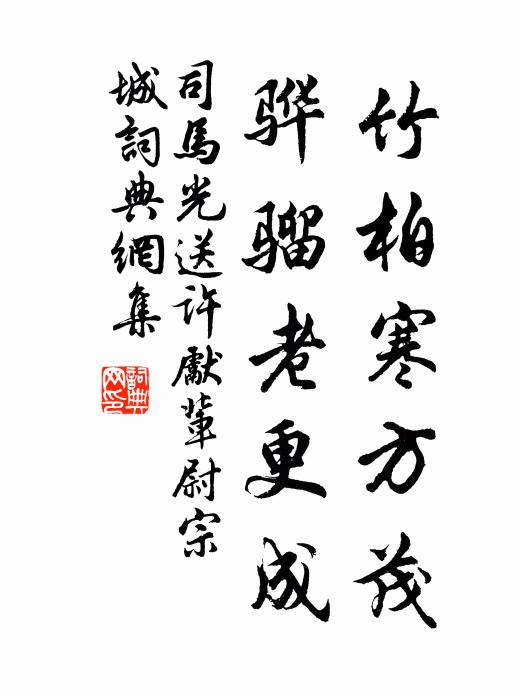 竹柏寒方茂
骅骝老更成
司馬光送許獻輩尉宗
城詞典網集
詞典
网印